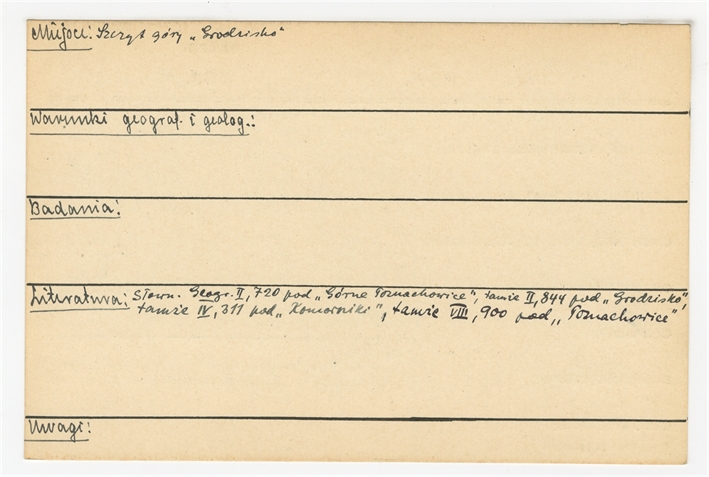 Miejsce: Szczyt góry „Grodzisko"
Warunki geograf. i geolog.:
Badania:
Literatura: Słown. Geogr. II, 720 pod „Górne Poznachowice", tamże II, 844 pod „Grodzisko",
tamże IV, 311 pod „Komorniki", tamże VIII, 900 pod „Poznachowice"
Uwagi: